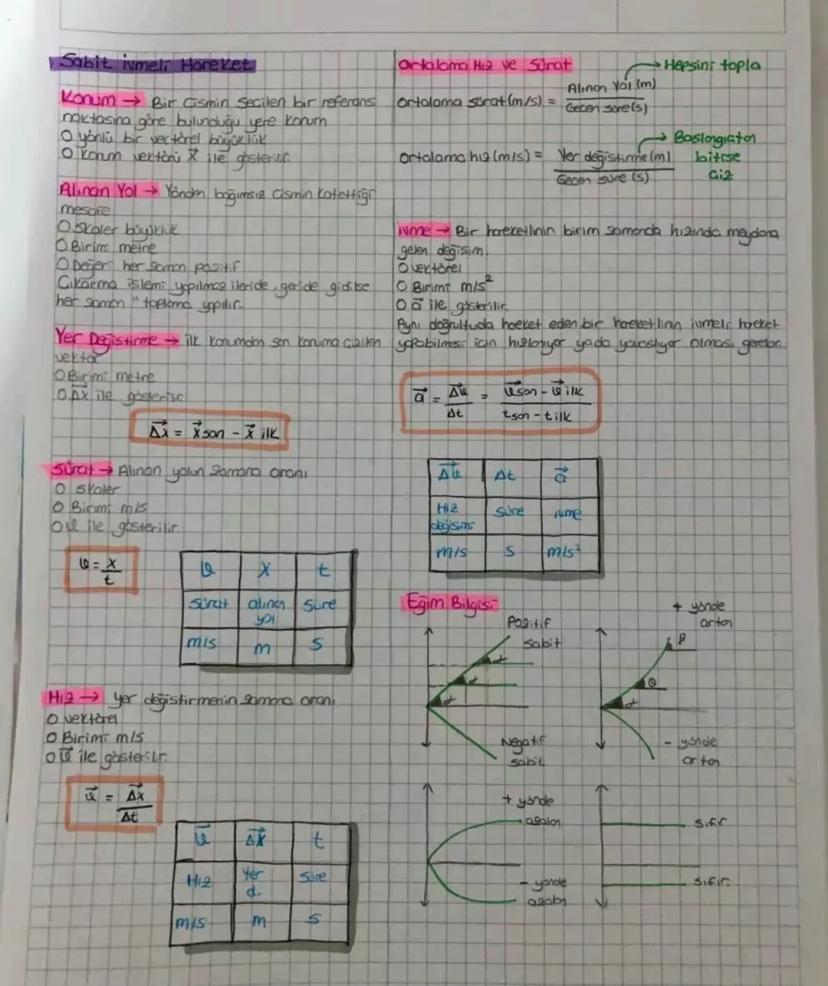 Sabit ivmeli Hareket
Konum → Bir cismin seçilen bir referans
noktasına göre bulunduğu yere konum
O yönlü bir vektörel büyüklük
O Konum vektörü x⃗ ile gösterilir.
Alınan Yol → Yönden bağımsız cismin katettiği
mesafe
O Skaler büyüklük
O Birimi metre
O Değeri her zaman pozitif
Çıkarma işlemi yapılmaz ileride, geride gidilse
her zaman "toplama yapılır.
Yer Değiştirme → ilk konumdan son konuma çizilen
vektör
O Birimi metre
O Δx ile gösterilir
Δx⃗ = x⃗ son - x⃗ ilk
Sürat → Alınan yolun zamana oranı
O Skaler
O Birimi m/s
O ϑ ile gösterilir
ϑ = x/t
ϑ x t
Sürat alınan yol Süre
m/s m s
Hız → yer değiştirmenin zamana oranı
O vektörel
O Birimi m/s
O ϑ⃗ ile gösterilir
ϑ⃗ = Δx⃗/Δt
ϑ⃗ Δx⃗ t
Hız Yer d. Süre
m/s m s
Ortalama Hız ve Sürat
→ Hepsini topla
ortalama sürat (m/s) = Alınan Yol (m) / Geçen süre (s)
→ Başlangıçtan
bitişe
çiz
ortalama hız (m/s) = Yer değiştirme (m) / Geçen süre (s)
ivme → Bir hareketlinin birim zamanda hızında meydana
gelen değişim.
O vektörel
O Birimi m/s²
O a⃗ ile gösterilir
Aynı doğrultuda hareket eden bir hareketlinin ivmeli hareket
yapabilmesi için hızlanıyor yada yavaşlıyor olması gerekir.
a⃗ = Δϑ⃗/Δt = ϑ⃗son - ϑ⃗ ilk / tson - tilk
Δϑ⃗ Δt a⃗
Hız değişimi Süre ivme
m/s s m/s²
Eğim Bilgisi
Pozitif
sabit
α
α
α
Negatif
sabit
+ yönde
artan
β
θ
α
- yönde
artan
+ yönde
azalan
- yönde
azalan
sıfır
sıfır